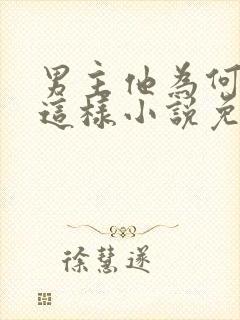 男主他為何
這樣小說免
徐慧遂